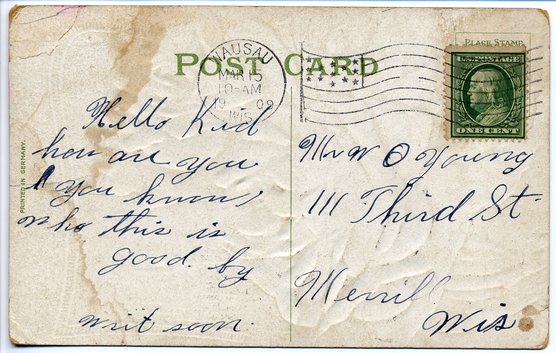 PLACE STAMP
POST CARD
WAUSAU
MAR 15
10-AM
19 09
WIS
U.S. POSTAGE
ONE CENT
PRINTED IN GERMANY.
Hello Kid
how are you
you know
who this is
good by
writ soon.
Mr W O Young
111 Third St
Merrill
Wis